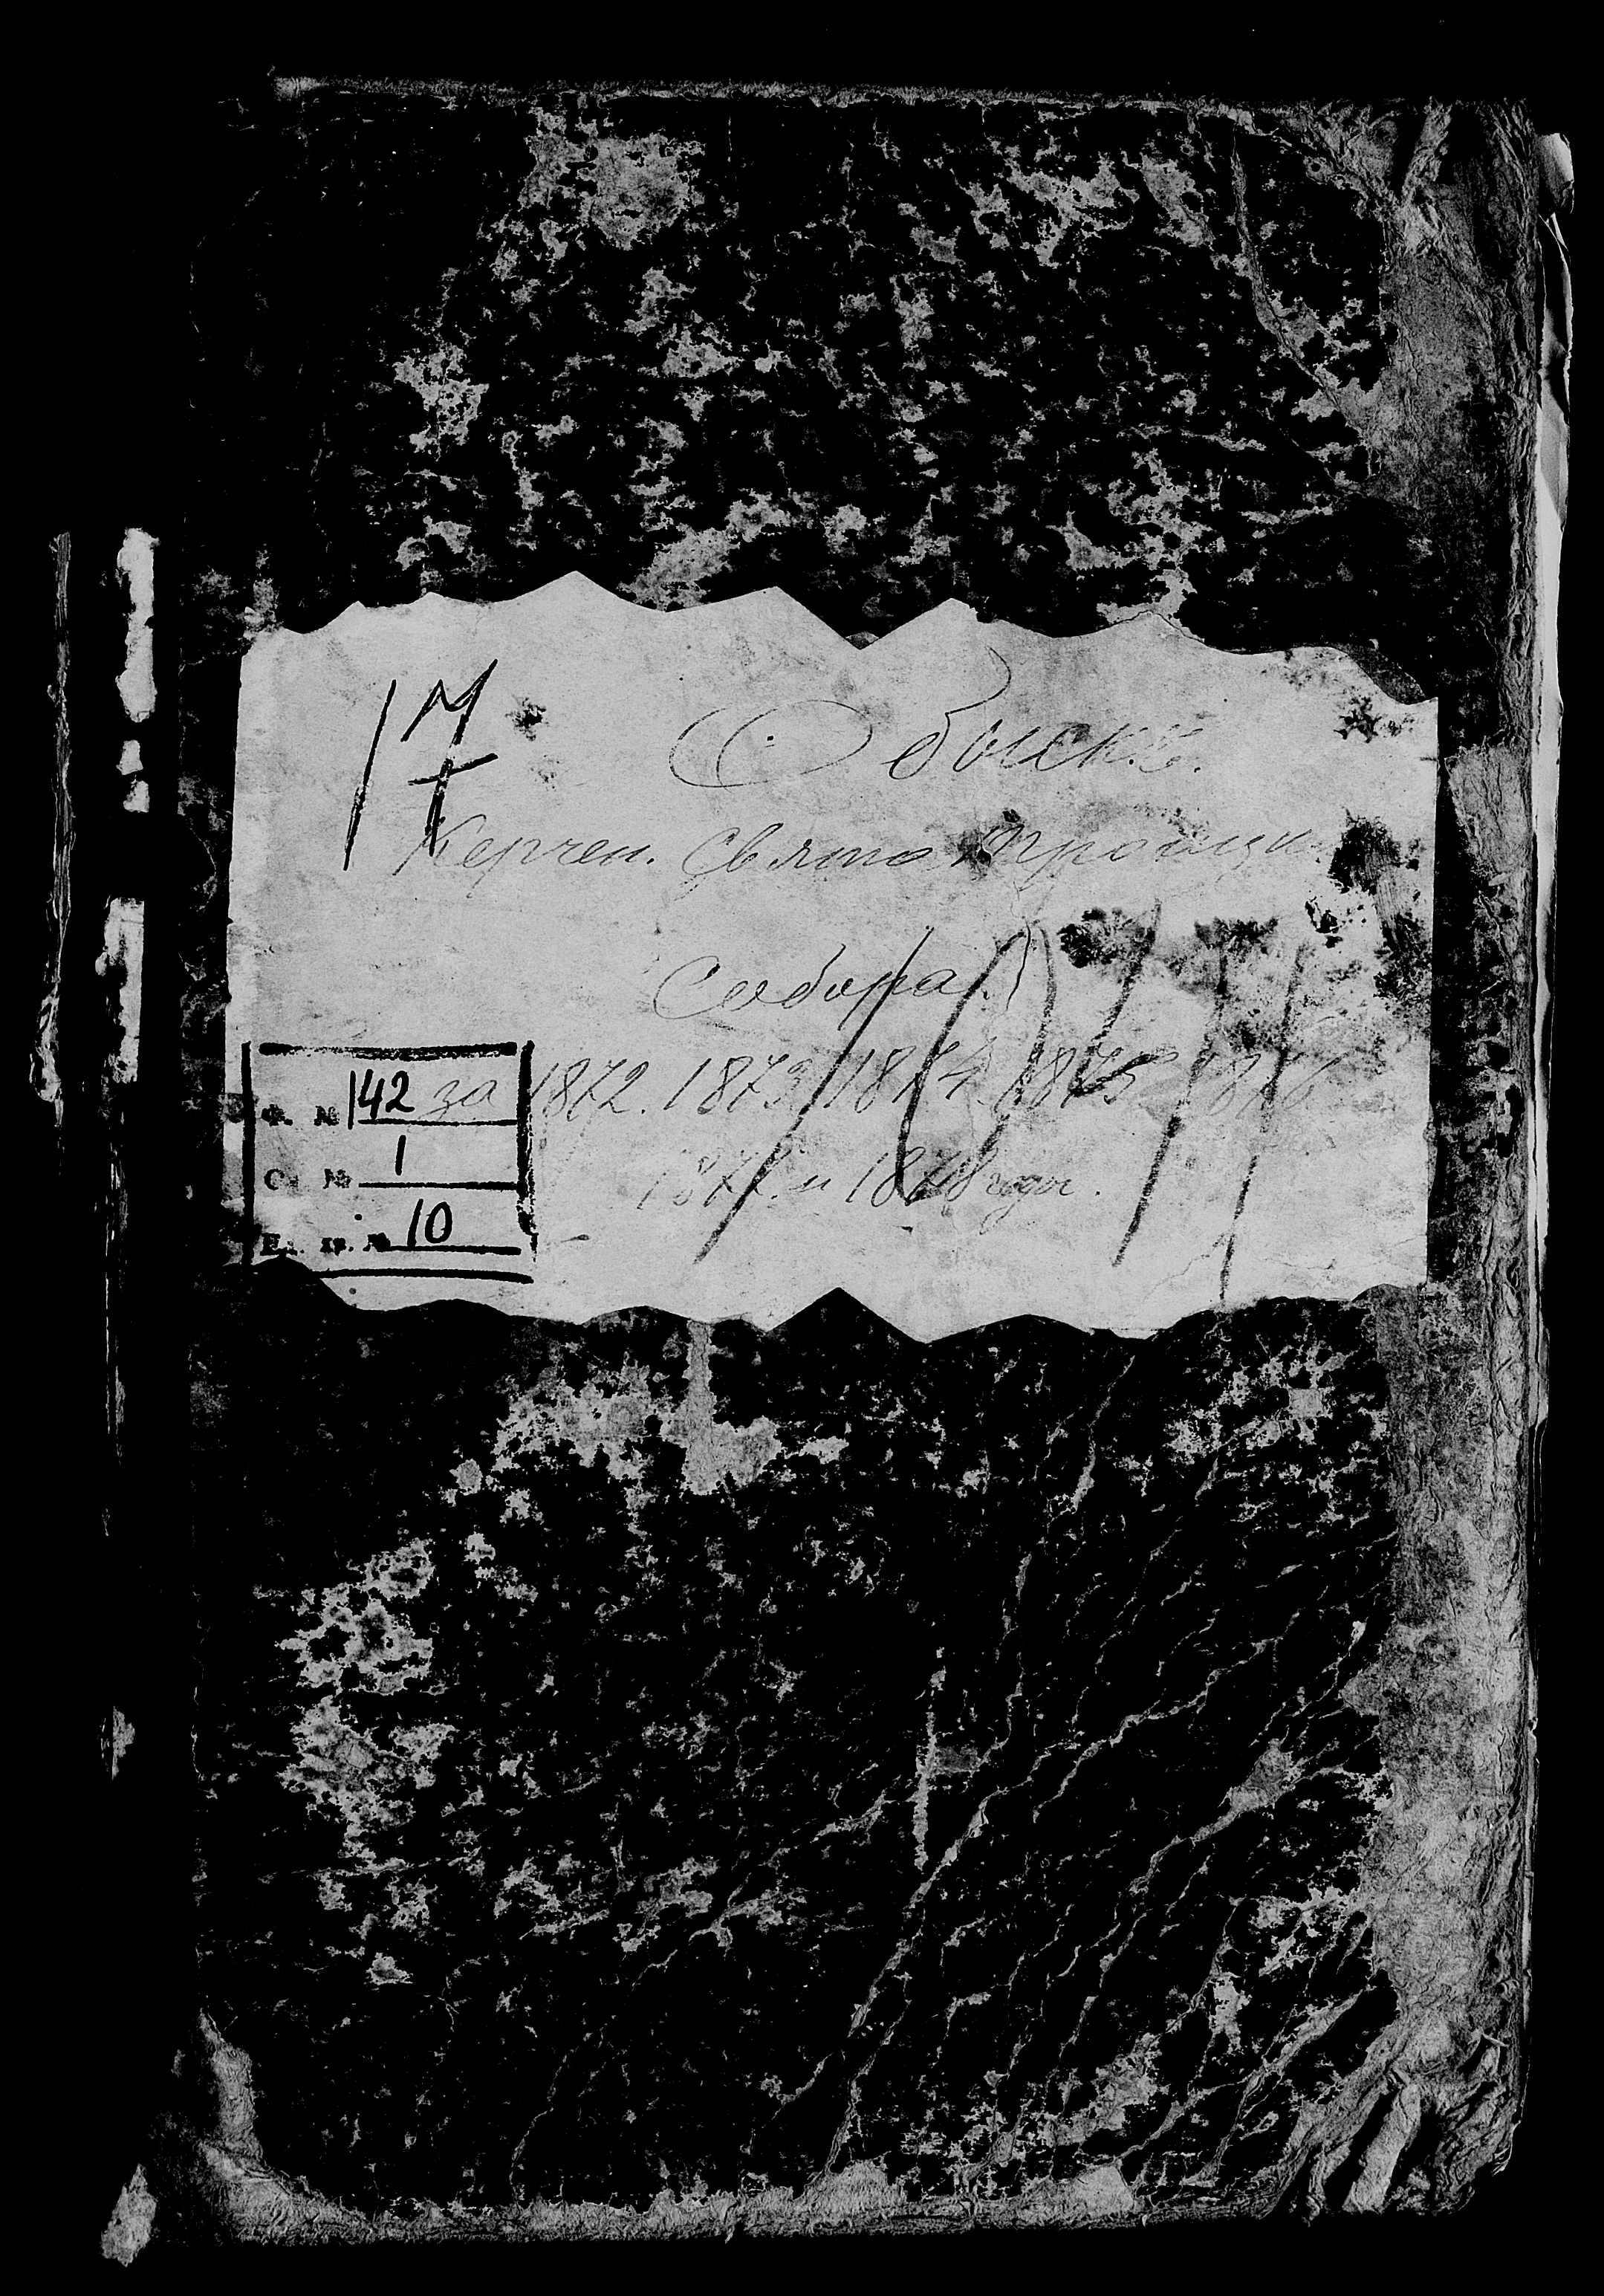 17
Обыскъ.
Керчен. Свято Троицк
Собора.
за 1872. 1873. 1874. 1875. 1876
1877. и 1878 годы.
Ф. № 142
Оп. № 1
Ед. хр. № 10